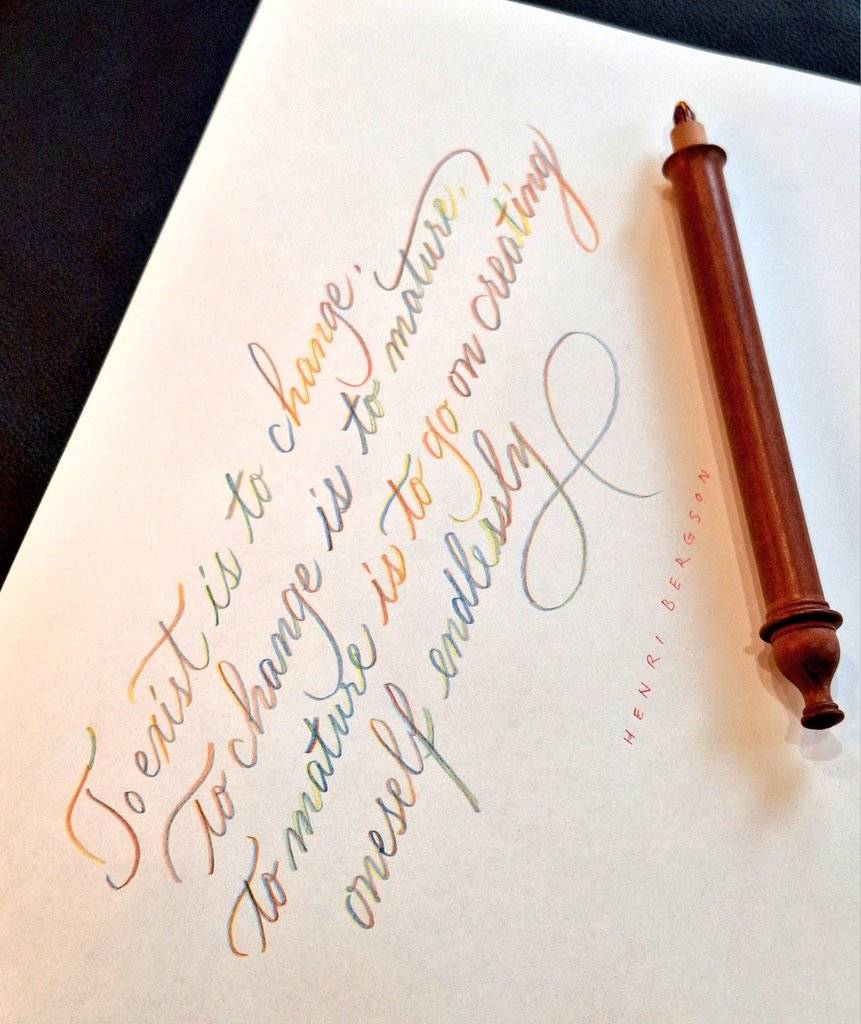 To exist is to change.
To change is to mature.
To mature is to go on creating
oneself endlessly
HENRI BERGSON